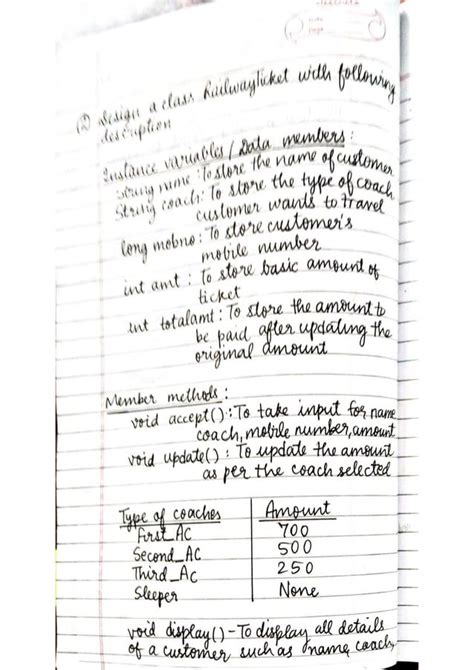 (2) Design a class RailwayTicket with following
description
Instance variables / Data members :
String name : To store the name of customer
String coach : To store the type of coach
customer wants to travel
long mobno : To store customer's
mobile number
int amt : To store basic amount of
ticket
int totalamt : To store the amount to
be paid after updating the
original amount
Member methods :
void accept() : To take input for name
coach, mobile number, amount
void update() : To update the amount
as per the coach selected
Type of coaches Amount
First_AC 700
Second_AC 500
Third_AC 250
Sleeper None
void display() - To display all details
of a customer such as name, coach,